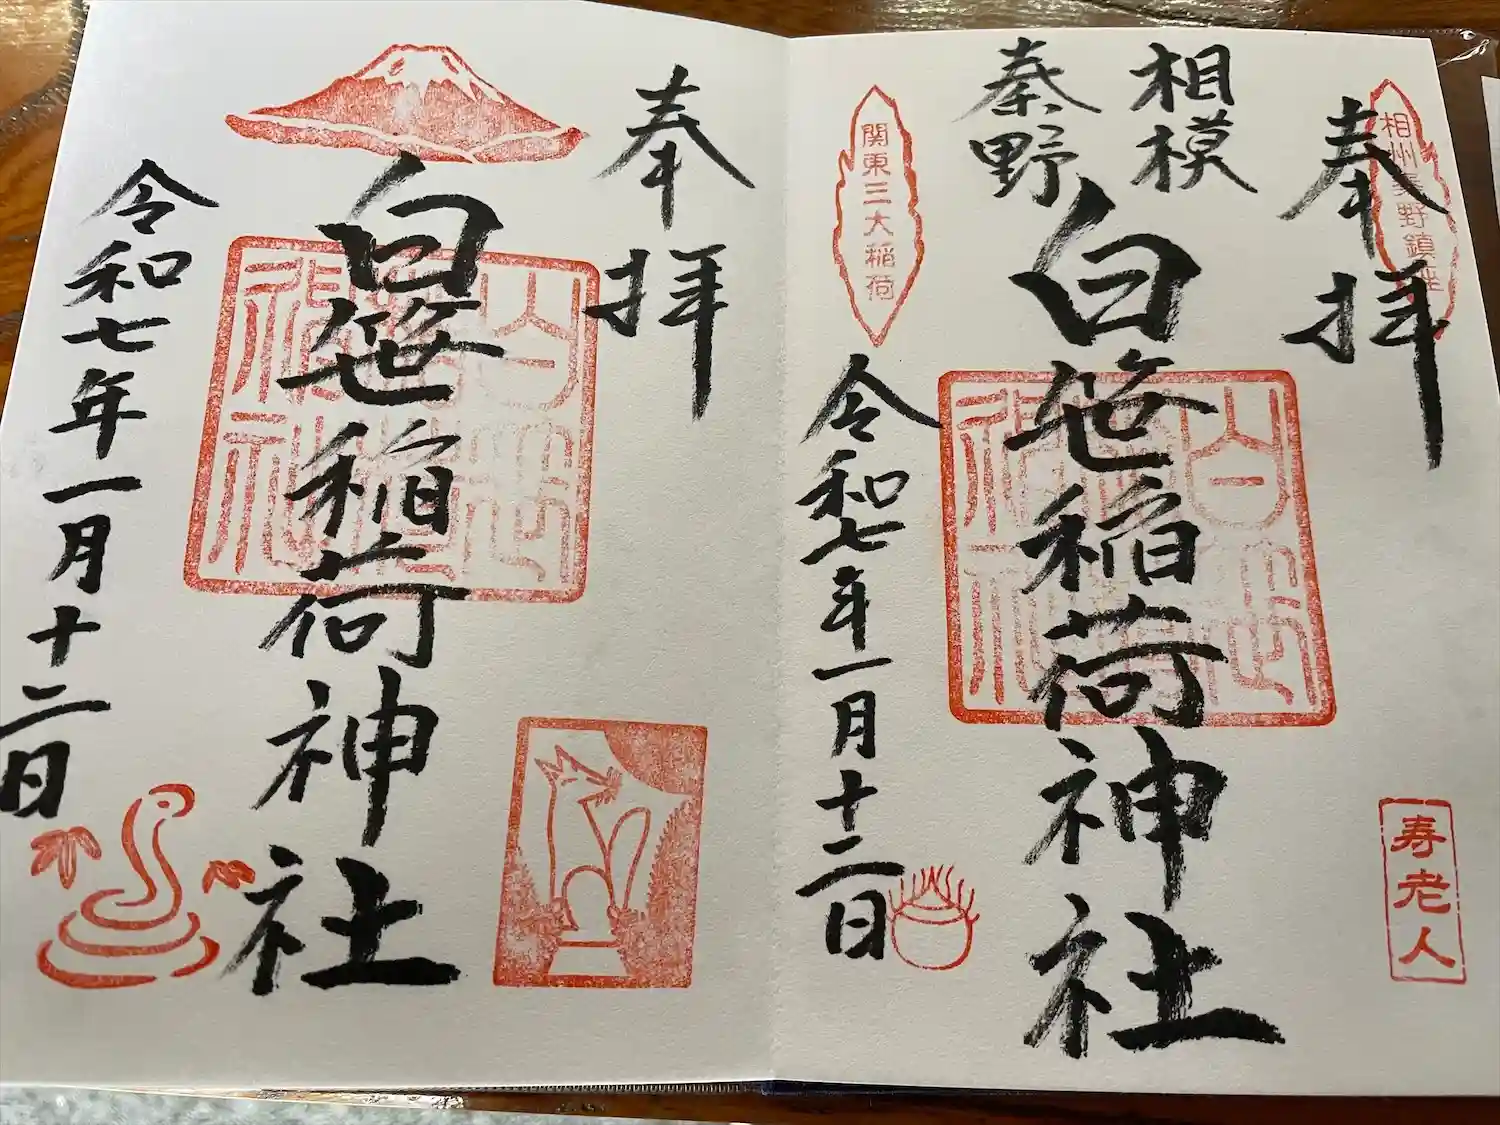 相州秦野鎮座
奉拝
相模
秦野
白笹稲荷神社
関東三大稲荷
令和七年一月十二日
寿老人
奉拝
白笹稲荷神社
令和七年一月十二日